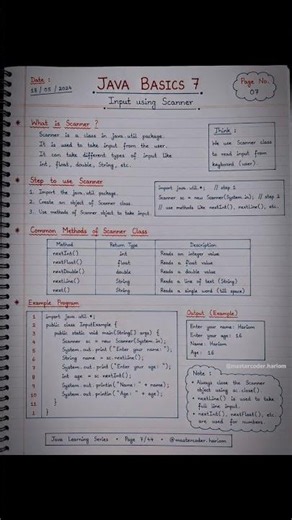 Date :
JAVA BASICS 7
Page No.
07
Input using Scanner
What is Scanner ?
Scanner is a class in java.util package.
It is used to take input from the user.
It can take different types of input like
int, float, double, String, etc.
Think :
We use Scanner class
to read input from
keyboard (user)
Step to use Scanner
1. Import the java.util package.
2. Create an object of Scanner class
3. Use methods of Scanner object to take input.
import java.util.*; // step 1
Scanner sc = new Scanner(System.in); // step 2
// use methods like nextInt(), nextLine(), etc.
Common Methods of Scanner Class
Method Return Type Description
nextInt() int Reads an integer value
nextFloat() float Reads a float value
nextDouble() double Reads a double value
nextLine() String Reads a line of text (String)
next() String Reads a single word (till space)
Example Program
1 import java.util.*;
2 public class InputExample {
3 public static void main(String[] args) {
4 Scanner sc = new Scanner(System.in);
5 System.out.print("Enter your name: ");
6 String name = sc.nextLine();
System.out.print("Enter your age: ");
int age = sc.nextInt();
System.out.println("Name: " + name);
System.out.println("Age: " + age);
}
}
Output (Example)
Enter your name: Hariom
Enter your age: 16
Name: Hariom
Age: 16
@mastercoder.hariom
Note :
• Always close the Scanner
object using sc.close().
• nextLine() is used to take
full line input.
• nextInt(), nextFloat(), etc.
are used for numbers.
Java Learning Series • Page 7/49 • @mastercoder.hariom